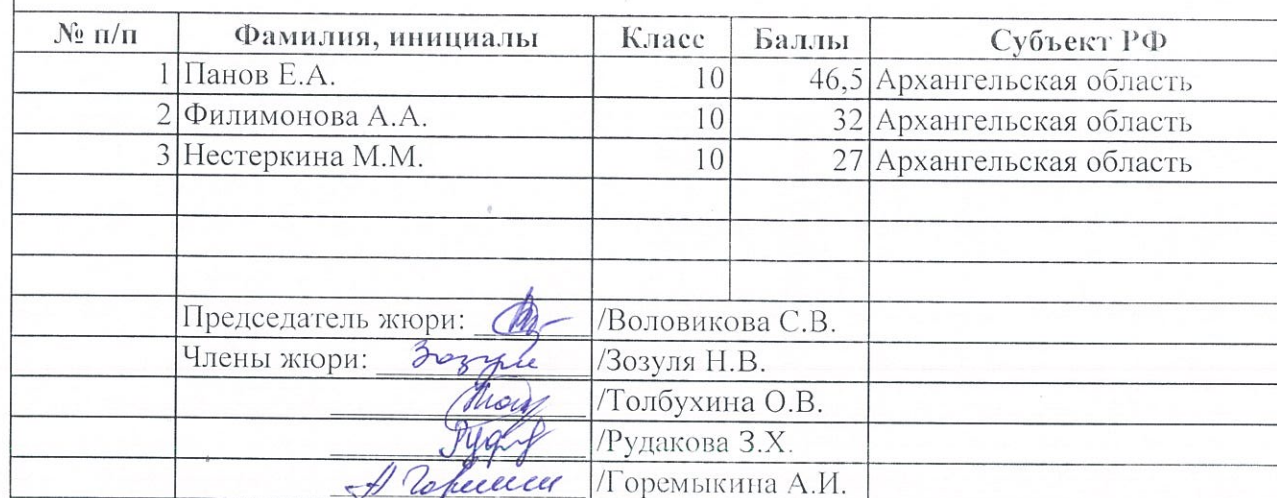 № п/п Фамилия, инициалы Класс Баллы Субъект РФ
1 Панов Е.А. 10 46,5 Архангельская область
2 Филимонова А.А. 10 32 Архангельская область
3 Нестеркина М.М. 10 27 Архангельская область
Председатель жюри: /Воловикова С.В.
Члены жюри: Зозуля /Зозуля Н.В.
/Толбухина О.В.
/Рудакова З.Х.
/Горемыкина А.И.